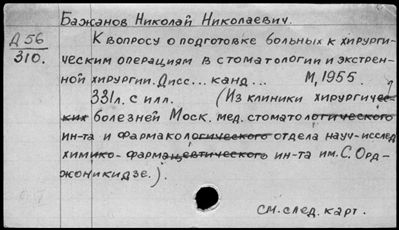 Бажанов Николай Николаевич.
Д 56
310.
К вопросу о подготовке больных к хирурги-
ческим операциям в стоматологии и экстрен-
ной хирургии. Дисс... канд... М, 1955.
331л. с илл. (Из клиники хирургичес-
ких болезней Моск. мед. стоматологического
ин-та и фармакологического отдела науч-исслед
химико-фармацевтического ин-та им. С. Орд-
жоникидзе.).
см. след. карт.